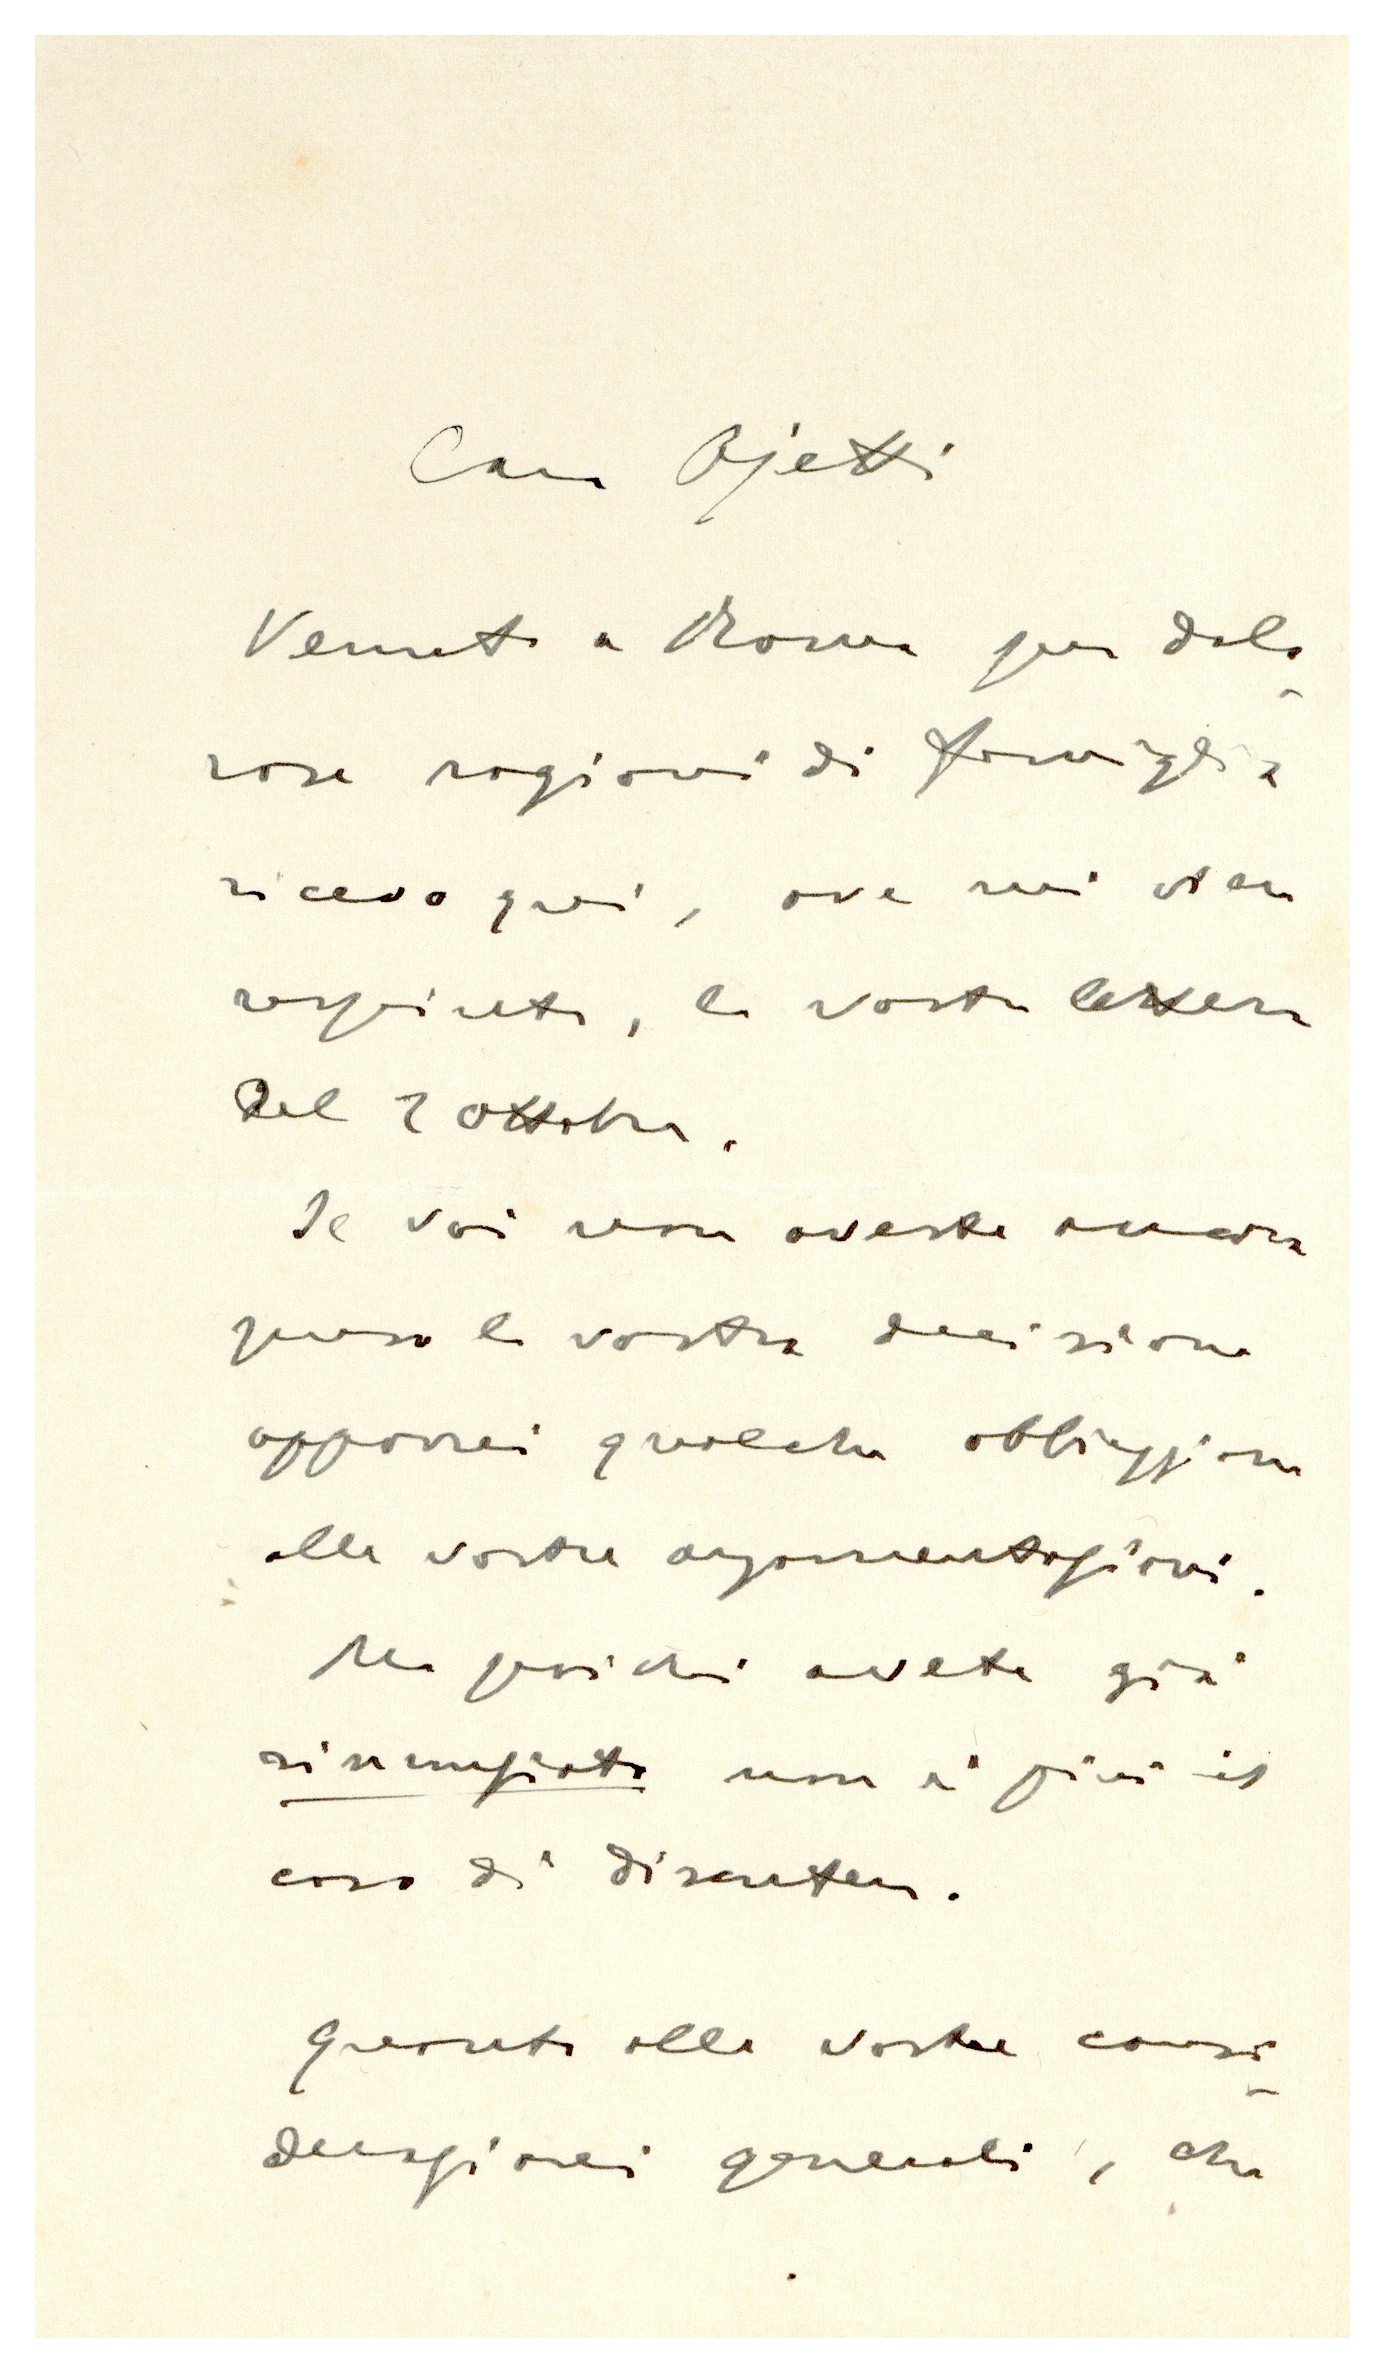 Caro Ojetti
Venuto a Roma per dolo-
rose ragioni di famiglia
ricevo qui, ove mi vien
respinta, la vostra lettera
del 2 ottobre.
Se voi non aveste ancora
preso la vostra decisione
opporrei qualche obbiezione
alle vostre argomentazioni.
Ma poichè avete già
rinunziato non è più il
caso di discutere.
Quanto alle vostre consi-
derazioni generali, che